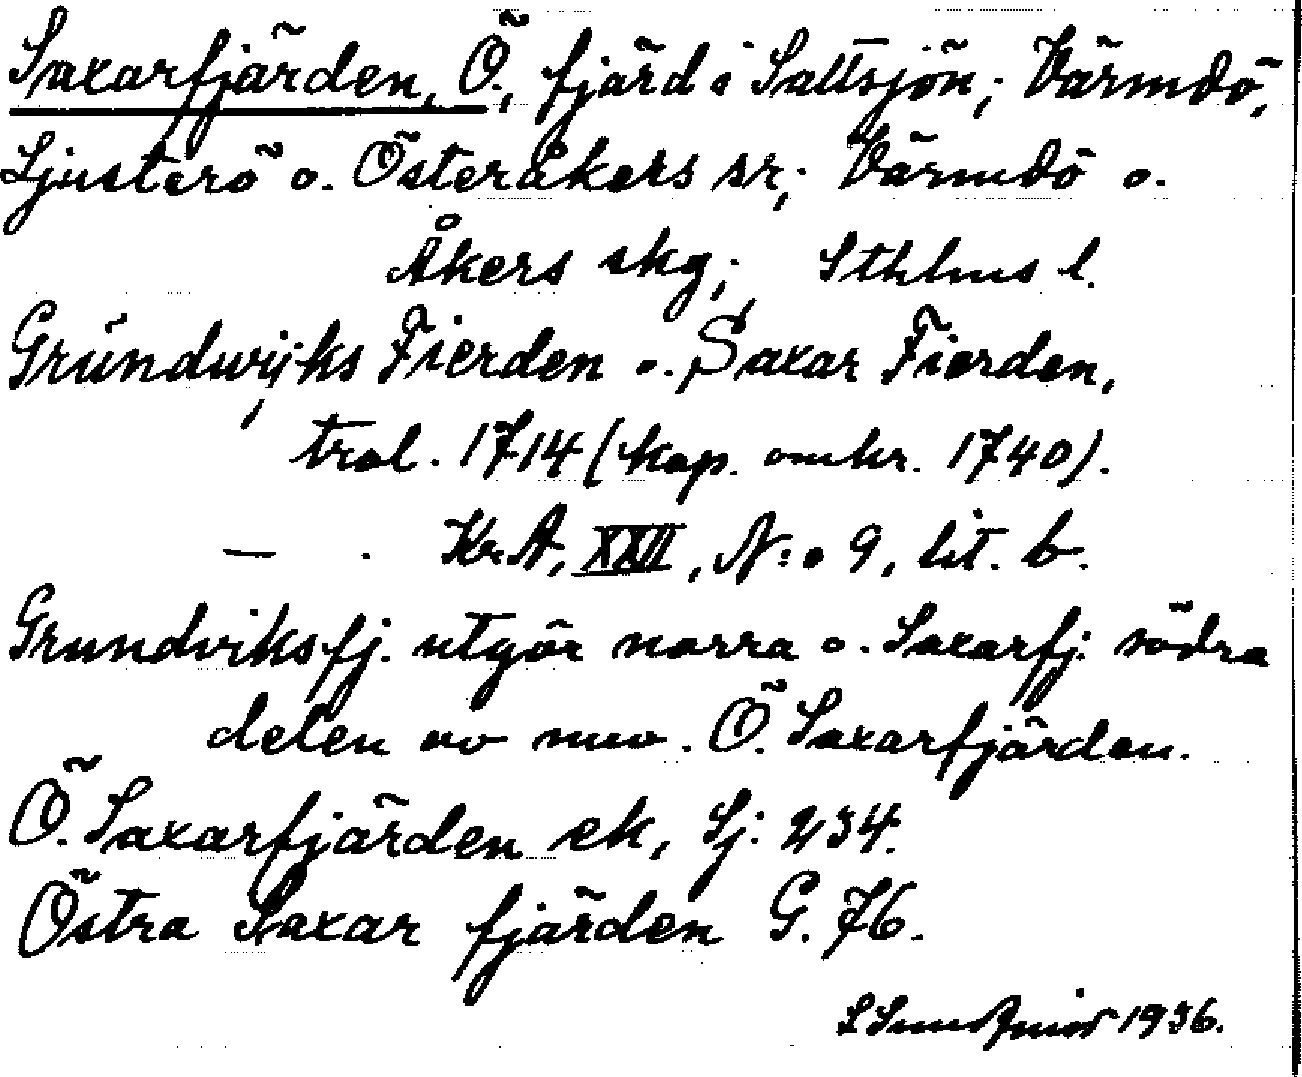 Saxarfjärden, Ö., fjärd i Saltsjön; Värmdö,
Ljusterö o. Österåkers sr; Värmdö o.
Åkers skg; Sthlms l.
Grundwijks Fierden o. Saxar Fierden,
tral. 1714 (kop. omkr. 1740).
— . Kr.A, XXII, N:o 9, lit. b.
Grundviksfj. utgör norra o. Saxarfj: södra
delen av nuv. Ö. Saxarfjärden.
Ö. Saxarfjärden ek, Lj: 234.
Östra Saxar fjärden G. 76.
1936.